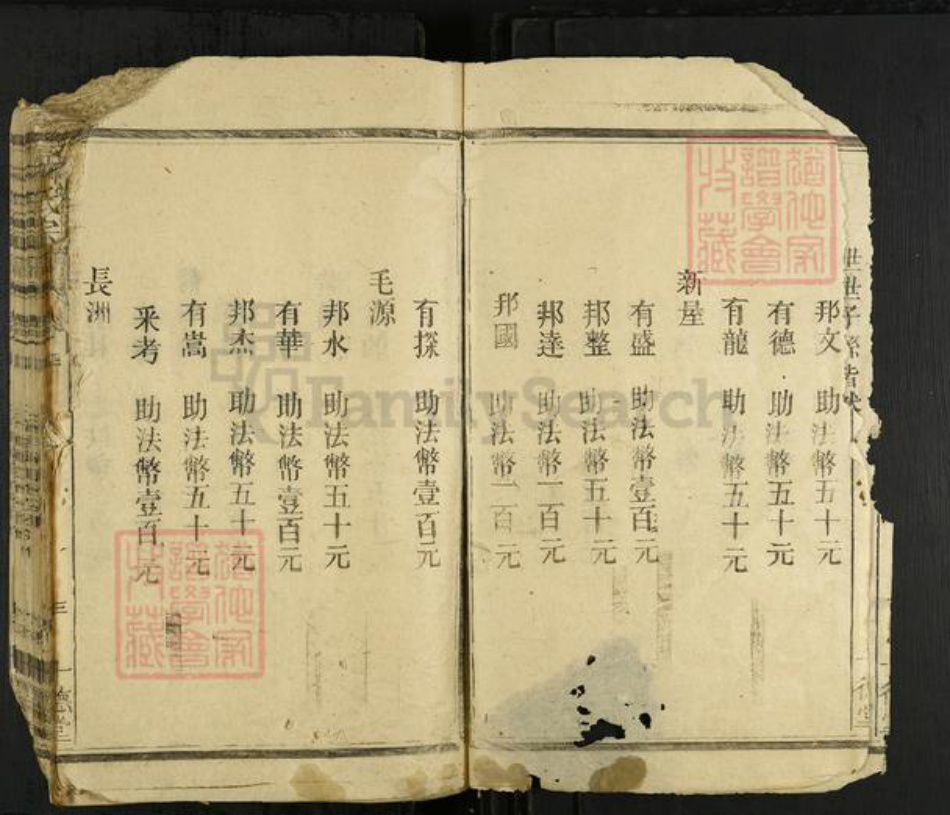 邦文 助法幣五十元
有德 助法幣五十元
有龍 助法幣五十元
新屋
有盛 助法幣壹百元
邦整 助法幣五十元
邦達 助法幣二百元
邦國 助法幣一百元
有探 助法幣壹百元
毛源
邦水 助法幣五十元
有華 助法幣壹百元
邦杰 助法幣五十元
有嵩 助法幣五十元
采考 助法幣壹百元
長洲
譜學會
收藏
譜學會
收藏
FamilySearch